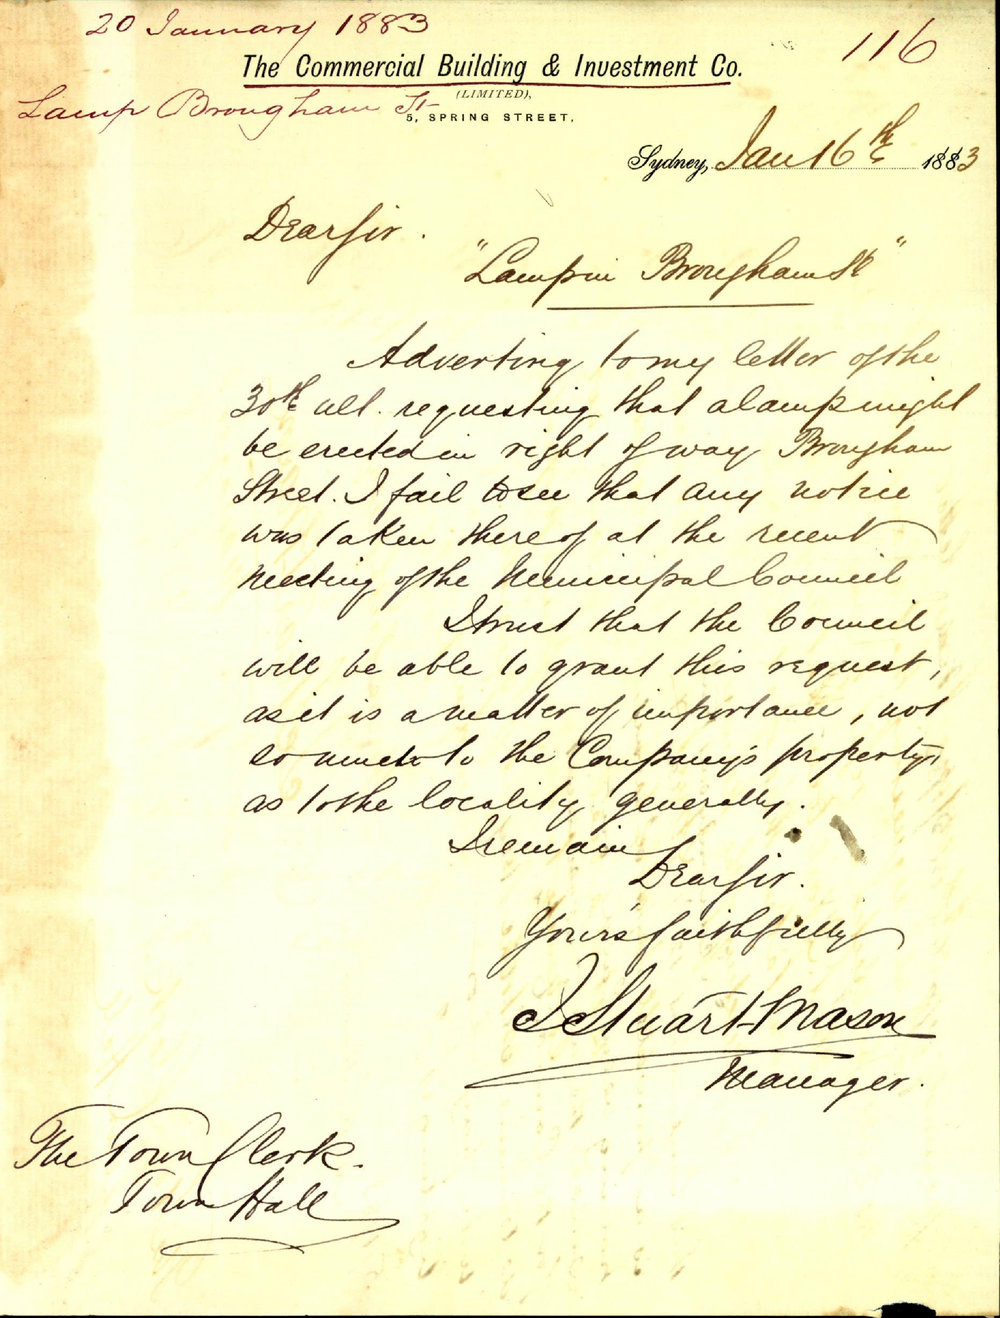 20 January 1883
116
The Commercial Building & Investment Co.
(LIMITED),
Lamp Brougham St
5, SPRING STREET.
Sydney, Jan 16th 1883
Dear Sir.
"Lamp in Brougham St"
Adverting to my letter of the
30th ult. requesting that a lamp might
be erected in right of way Brougham
Street. I fail to see that any notice
was taken thereof at the recent
meeting of the Municipal Council
I trust that the Council
will be able to grant this request,
as it is a matter of importance, not
so much to the Company's property,
as to the locality generally.
I remain
Dear Sir.
Yours faithfully
J Stuart Mason
Manager.
The Town Clerk.
Town Hall